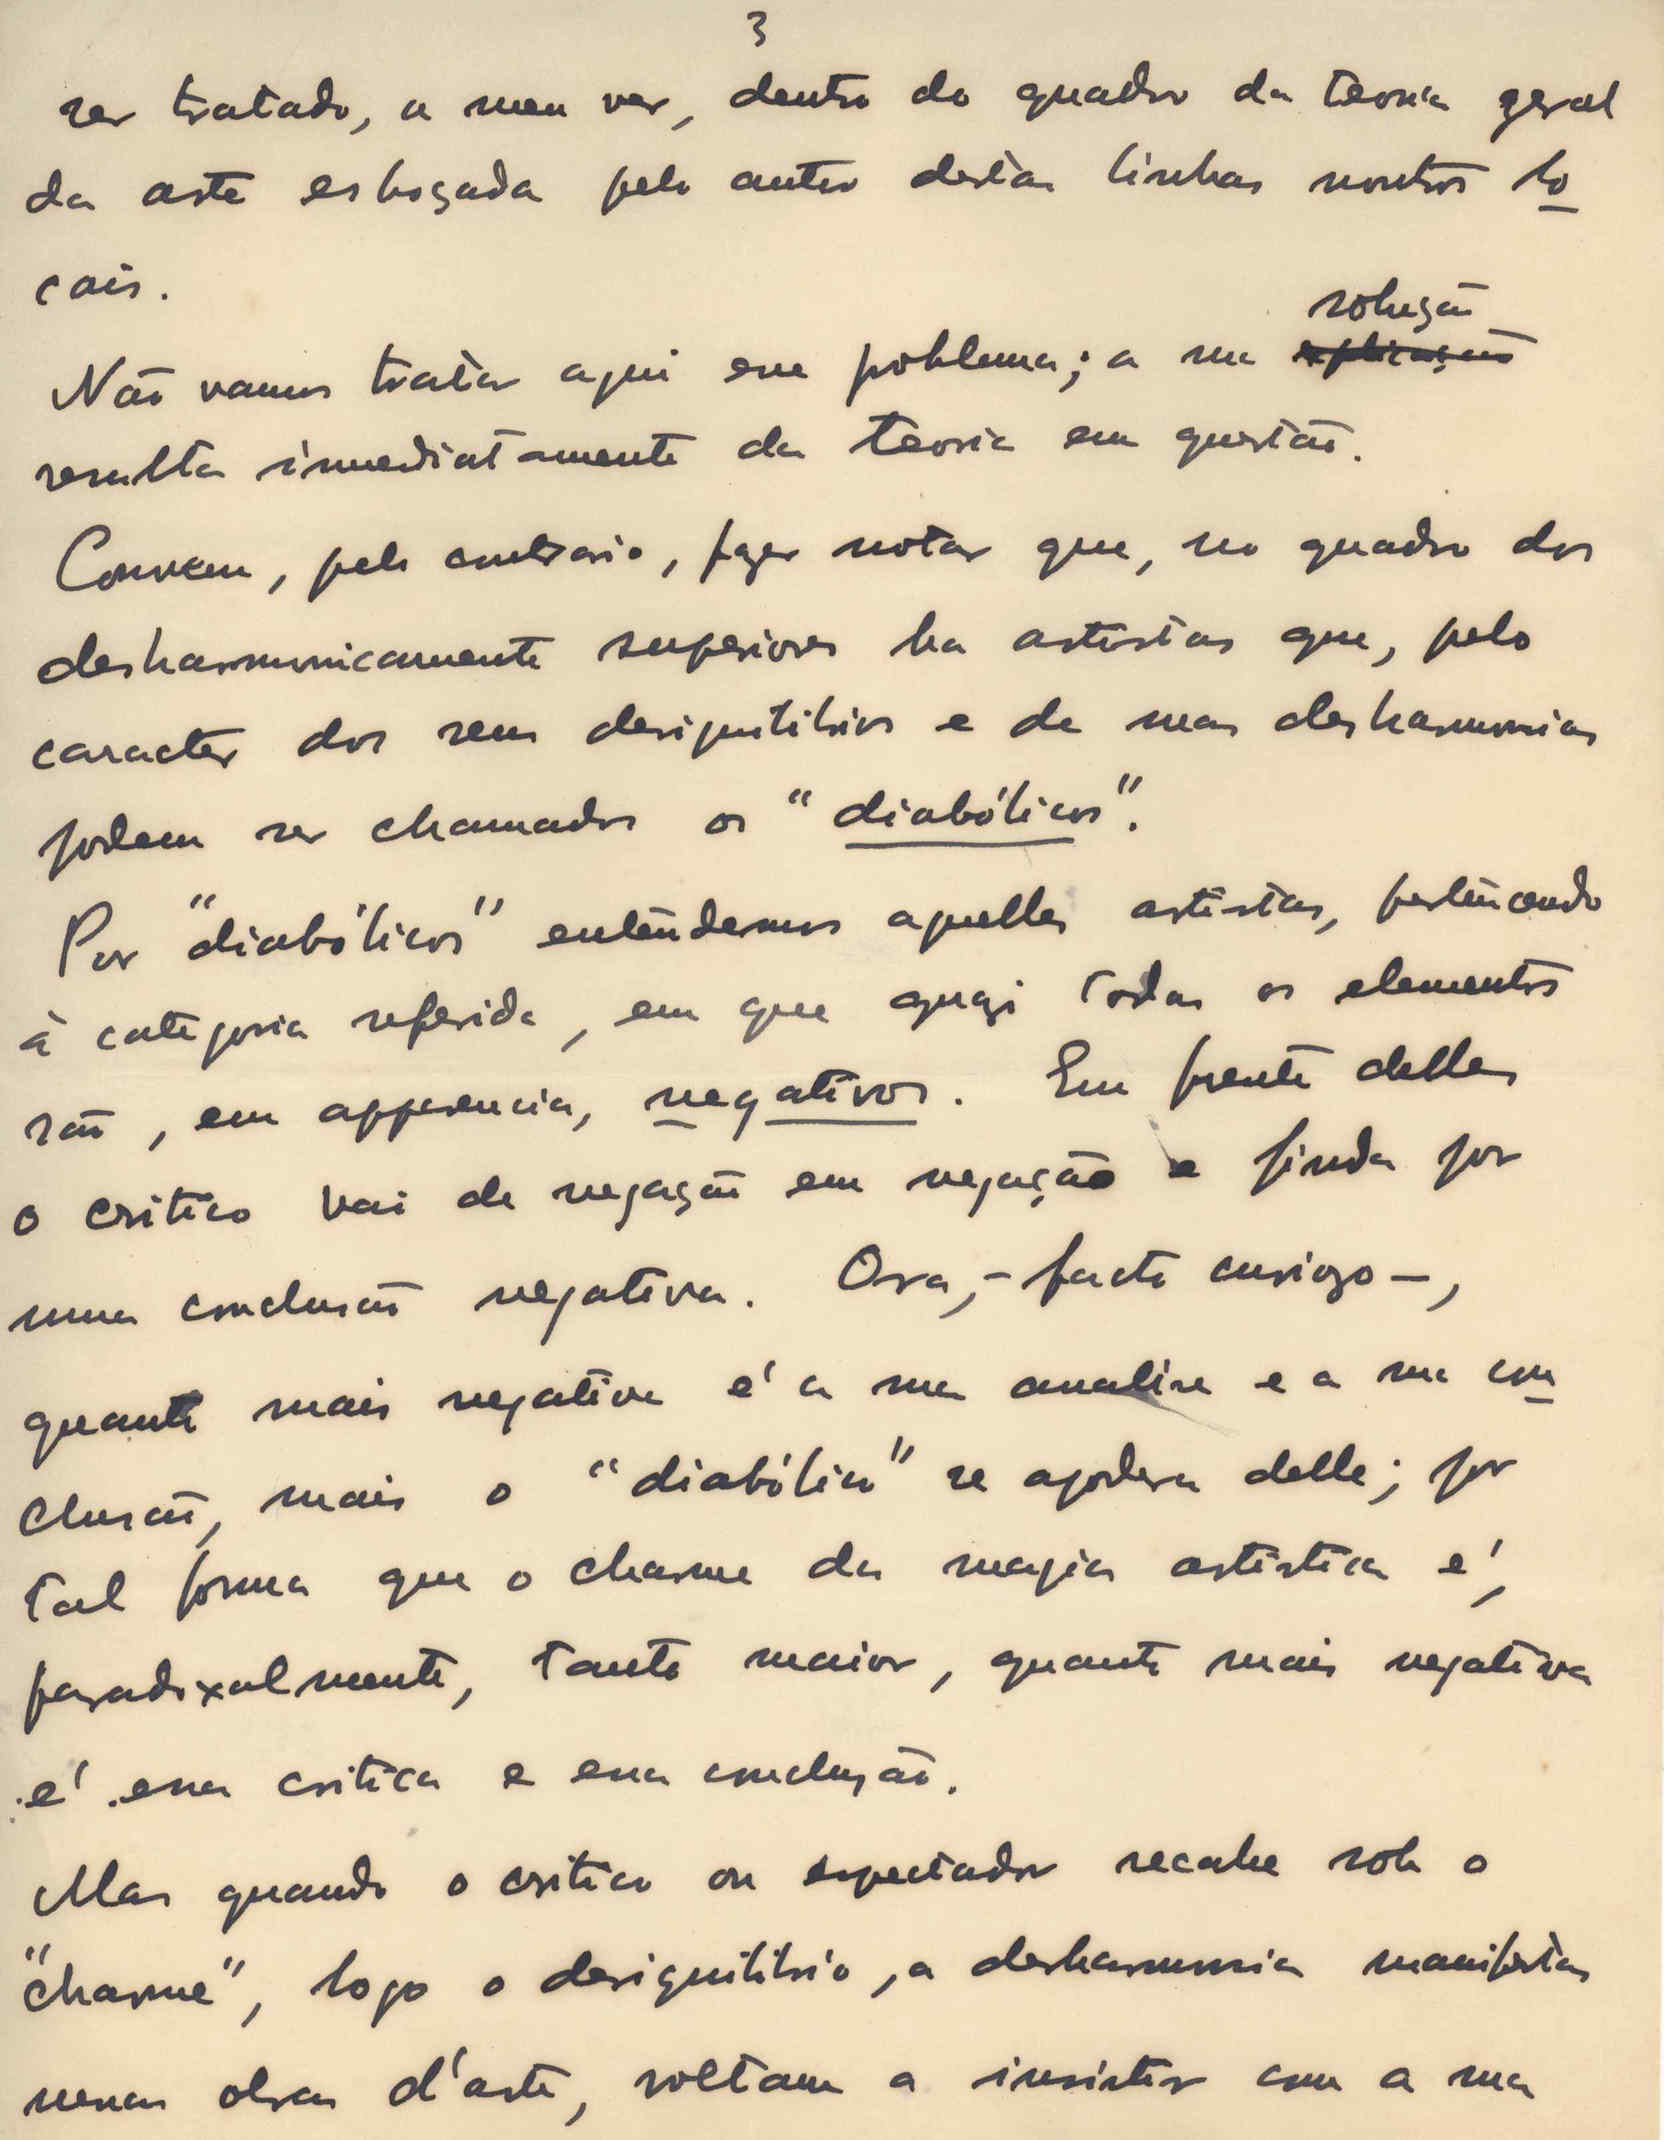 3
ser tratado, a meu ver, dentro do quadro da teoria geral
da arte esboçada pelo autor destas linhas noutros lo
cais.
solução
Não vamos tratar aqui esse problema; a sua explicação
resulta immediatamente da teoria em questão.
Convem, pelo contrario, fazer notar que, no quadro dos
desharmonicamente superiores ha artistas que, pelo
caracter dos seus desiquilibrios e de suas desharmonias
podem ser chamados os "diabólicos".
Por "diabólicos" entendemos aquelles artistas, pertencendo
à categoria referida, em que quazi todos os elementos
são, em apparencia, negativos. Em frente delles
o critico vai de negação em negação e finda por
uma conclusão negativa. Ora, - facto curiozo -,
quanto mais negativa é a sua analise e a sua con
clusão, mais o "diabólico" se apodera delle; por
tal forma que o charme da magia artistica é,
paradoxalmente, tanto maior, quanto mais negativa
é essa critica e essa conclusão.
Mas quando o critico ou espectador recahe sob o
"charme", logo o desiquilibrio, a desharmonia manifestas
nessas obras d'arte, voltam a insistir com a sua